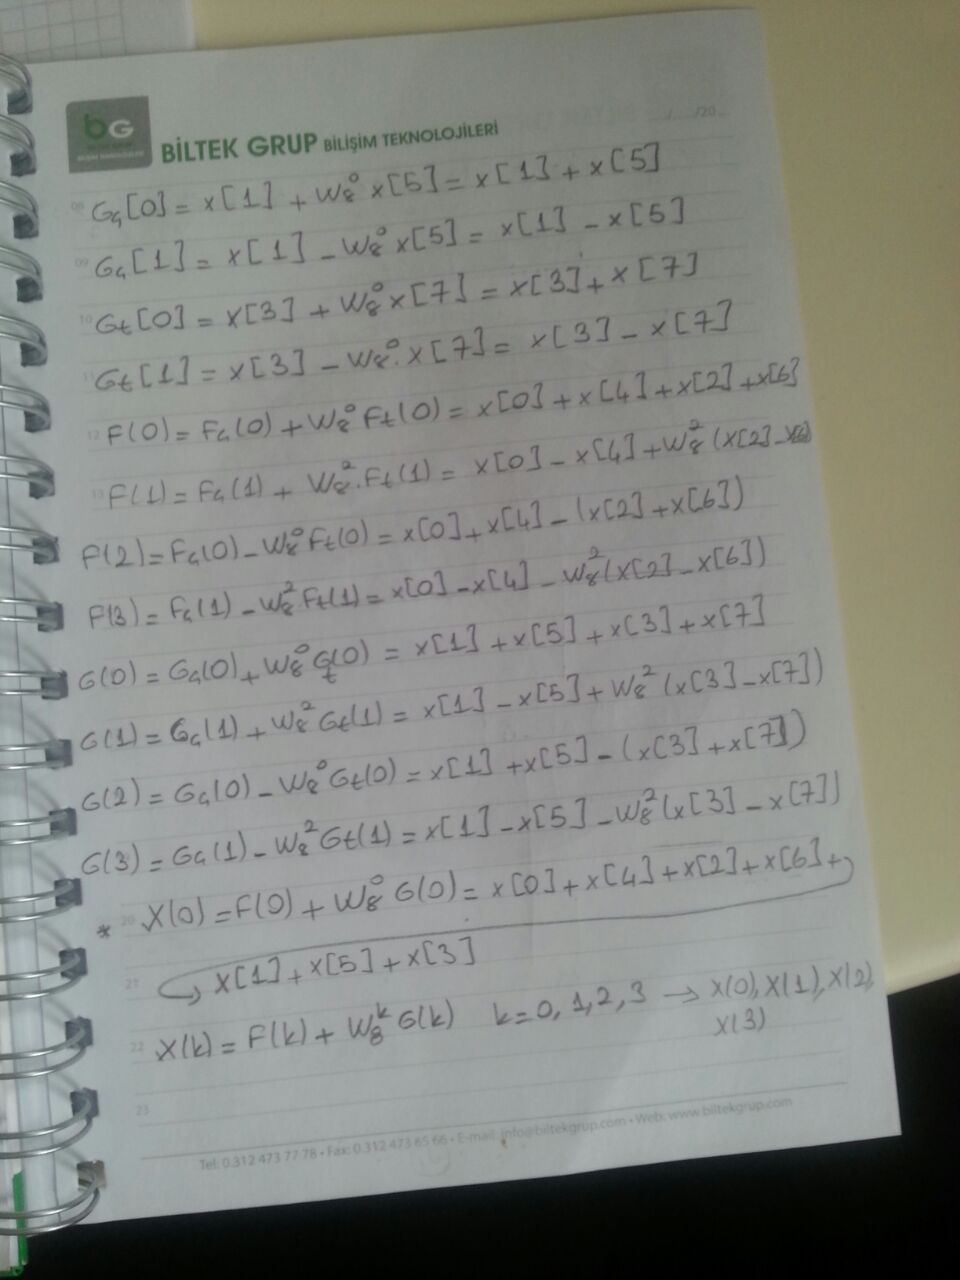 bG
BİLTEK GRUP BİLİŞİM TEKNOLOJİLERİ
/20
09 Gq[0] = x[1] + W₈⁰ x[5] = x[1] + x[5]
Gq[1] = x[1] - W₈⁰ x[5] = x[1] - x[5]
10 Gt[0] = x[3] + W₈⁰ x[7] = x[3] + x[7]
11 Gt[1] = x[3] - W₈⁰. x[7] = x[3] - x[7]
12 F(0) = Fq(0) + W₈⁰ Ft(0) = x[0] + x[4] + x[2] + x[6]
13 F(1) = Fq(1) + W₈². Ft(1) = x[0] - x[4] + W₈² (x[2] -
F(2) = Fq(0) - W₈⁰ Ft(0) = x[0] + x[4] - (x[2] + x[6])
F(3) = Fq(1) - W₈² Ft(1) = x[0] - x[4] - W₈² (x[2] - x[6])
G(0) = Gq(0) + W₈⁰ Gt(0) = x[1] + x[5] + x[3] + x[7]
G(1) = Gq(1) + W₈² Gt(1) = x[1] - x[5] + W₈² (x[3] - x[7])
G(2) = Gq(0) - W₈⁰ Gt(0) = x[1] + x[5] - (x[3] + x[7])
G(3) = Gq(1) - W₈² Gt(1) = x[1] - x[5] - W₈² (x[3] - x[7])
* 20 X(0) = F(0) + W₈⁰ G(0) = x[0] + x[4] + x[2] + x[6] +
21 x[1] + x[5] + x[3]
22 X(k) = F(k) + W₈ᵏ G(k) k = 0, 1, 2, 3 → X(0), X(1), X(2),
X(3)
23
Tel: 0.312 473 77 78 • Fax: 0.312 473 65 66 • E-mail: info@biltekgrup.com • Web: www.biltekgrup.com